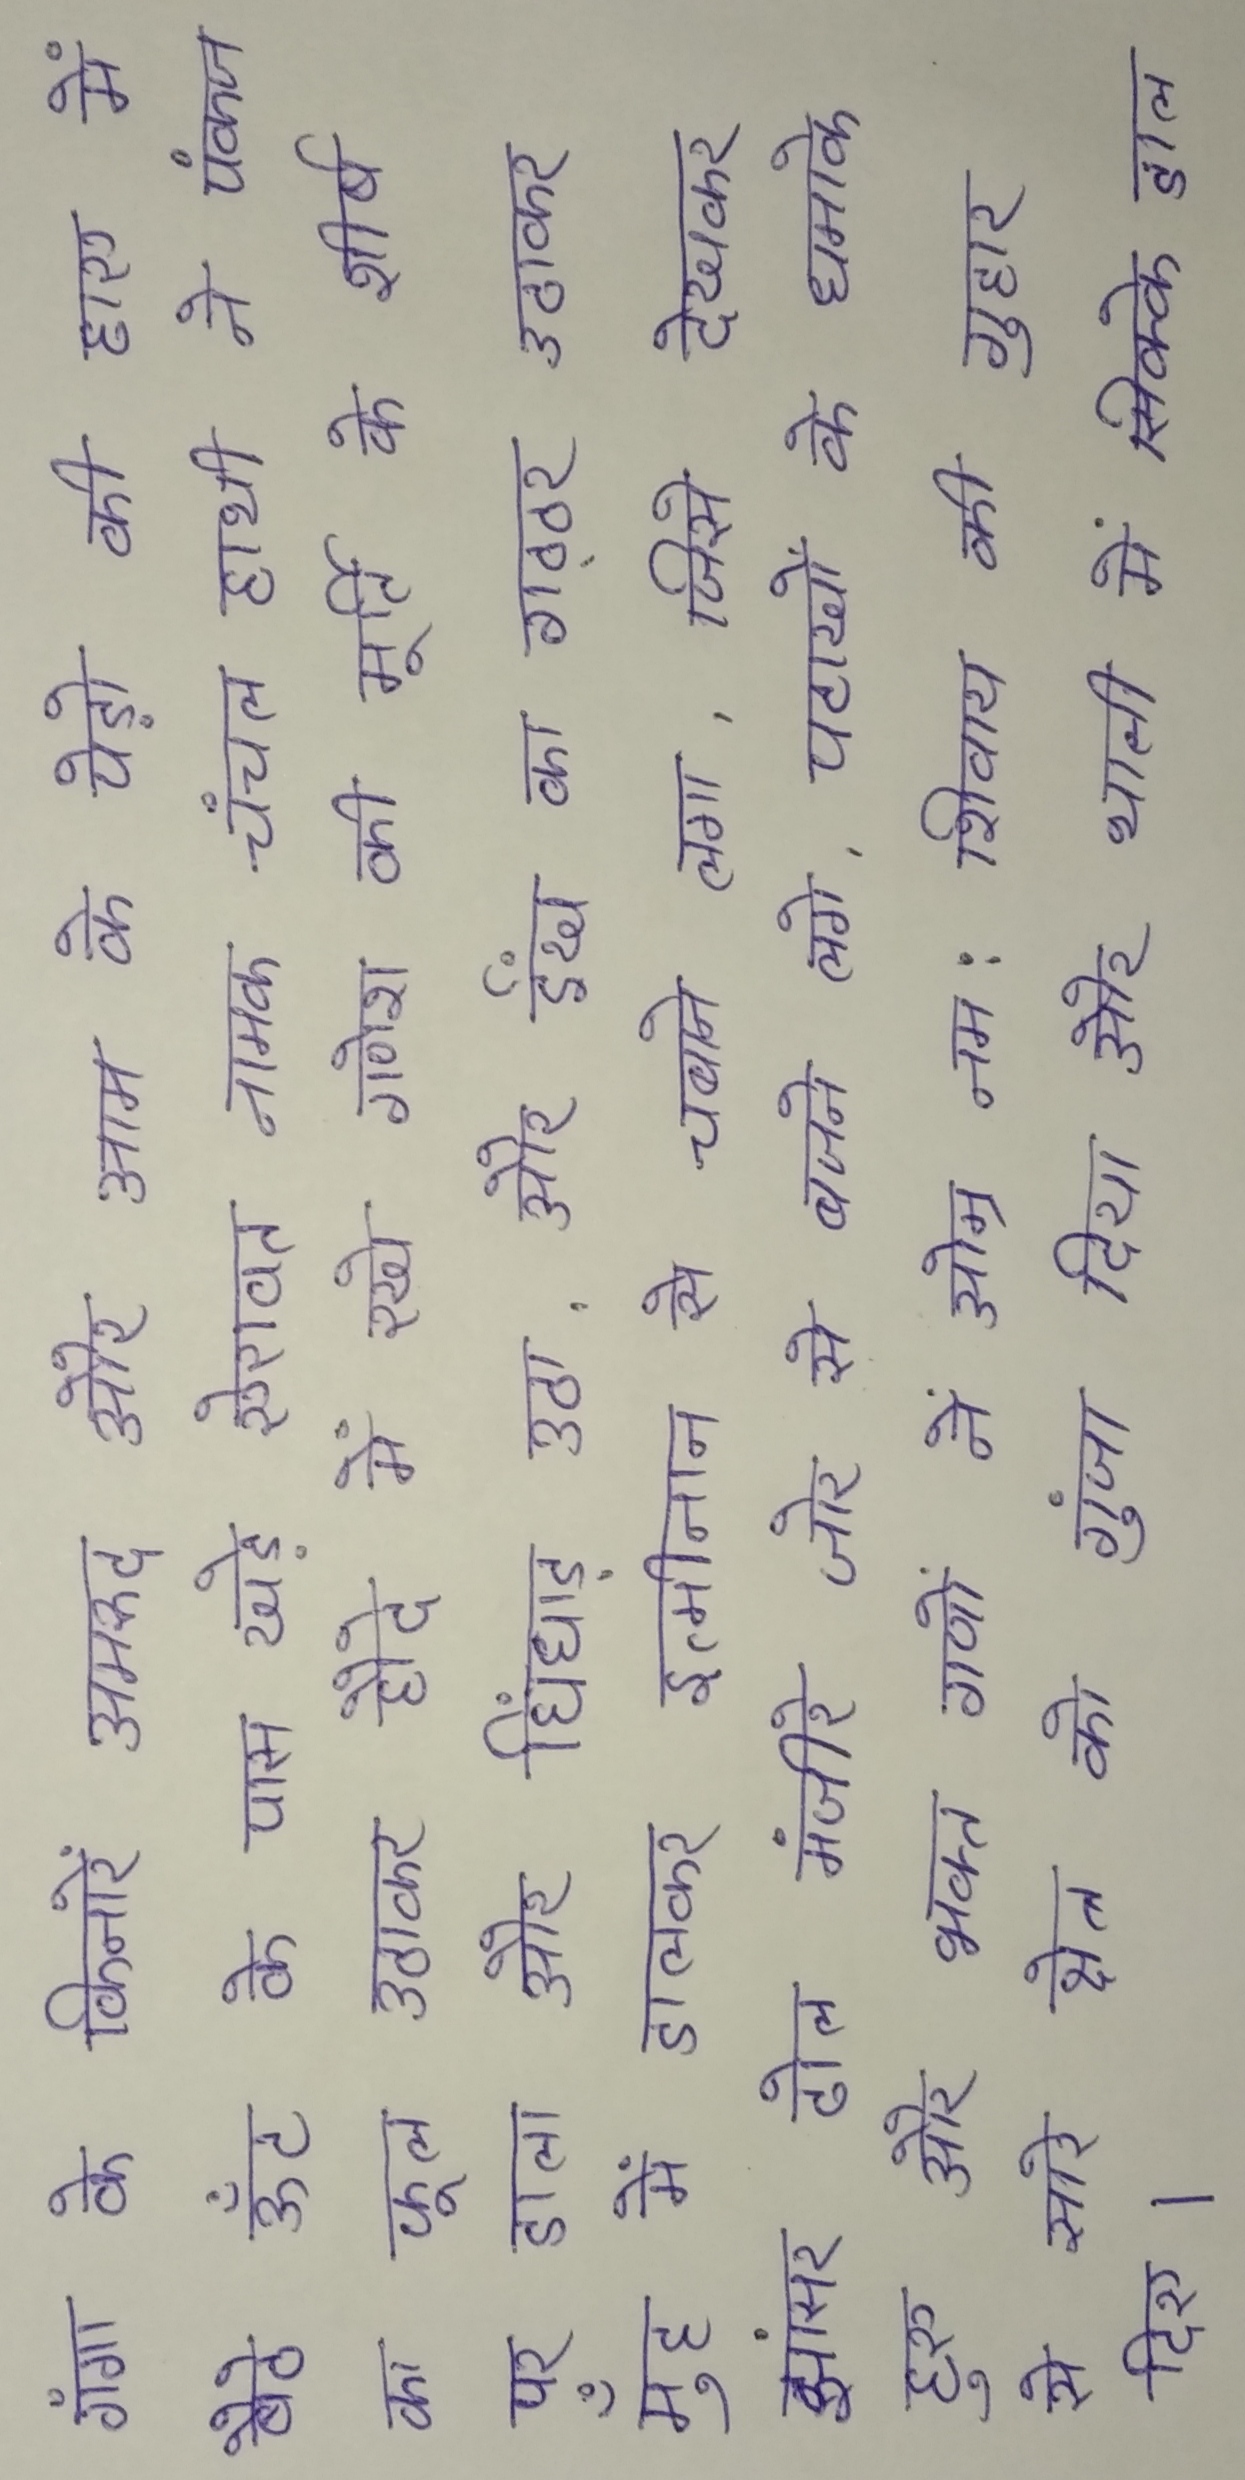 गंगा के किनारें अमरुद और आम के पेड़ो की छाए में
बैठे ऊँट के पास खड़े ऐरावत नामक चंचल हाथी ने पंकज
का फूल उठाकर हौदे में रखे गणेश की मूर्ति के शीर्ष
पर डाला और घिंघाड़ उठा, और ईंख का गठ्ठर उठाकर
मुँह में डालकर इत्मीनान से चबाने लगा, जिसे देखकर
झांसर ढोल मंजीरे जोर से बजने लगे, पटाखों के धमाके
हुए और भक्त गणों नें ओम्र नम: शिवाय की गुहार
से सारे क्षेत्र को गुंजा दिया और थाली में सिक्के डाल
दिए।